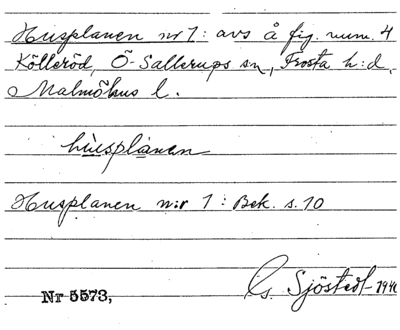 Husplanen nr 1: avs å fig. num. 4
Kölleröd, Ö-Sallerups sn, Frosta h:d,
Malmöhus l.
húsplànen
Husplanen n:r 1: Bek. s. 10
Nr 5573, G. Sjöstedt 1940